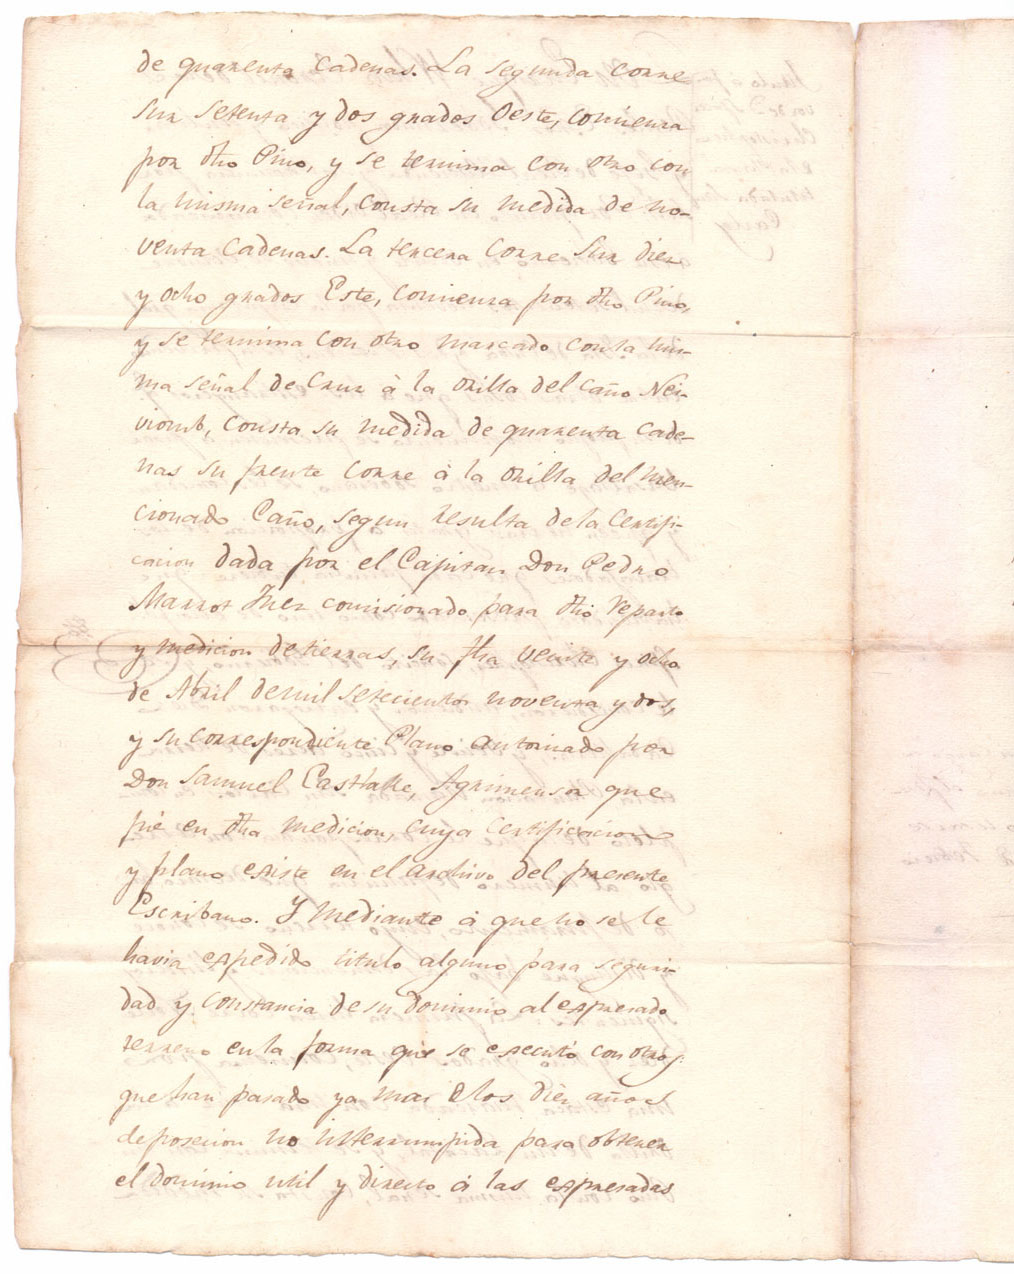 de quarenta Cadenas. La segunda corre
Sur setenta y dos grados Oeste, comienza
por dho Pino, y se termina con otro con
la misma señal, consta su medida de no-
venta Cadenas. La tercera Corre Sur diez
y ocho grados Este, comienza por dho Pino,
y se termina con otro marcado con la mis-
ma señal de Cruz à la orilla del Caño
consta su medida de quarenta Cade-
nas su frente corre à la orilla del men-
cionado Caño, segun resulta de la Certifi-
cacion dada por el Capitan Don Pedro
Marrot Juez comisionado para dho reparto
y medicion de tierras, su fha veinte y ocho
de Abril de mil setecientos noventa y dos,
y su correspondiente Plano autorizado por
Don Samuel Eastlake, Agrimensor que
fué en dha medicion, cuya Certificacion
y plano existe en el archivo del presente
Escribano. Y mediante à que no se le
havia expedido titulo alguno para seguri-
dad y constancia de su dominio al expresado
terreno en la forma que se executó con otros
que han pasado ya mas de los diez años
de posecion no interrumpida para obtener
el dominio util y directo à las expresadas